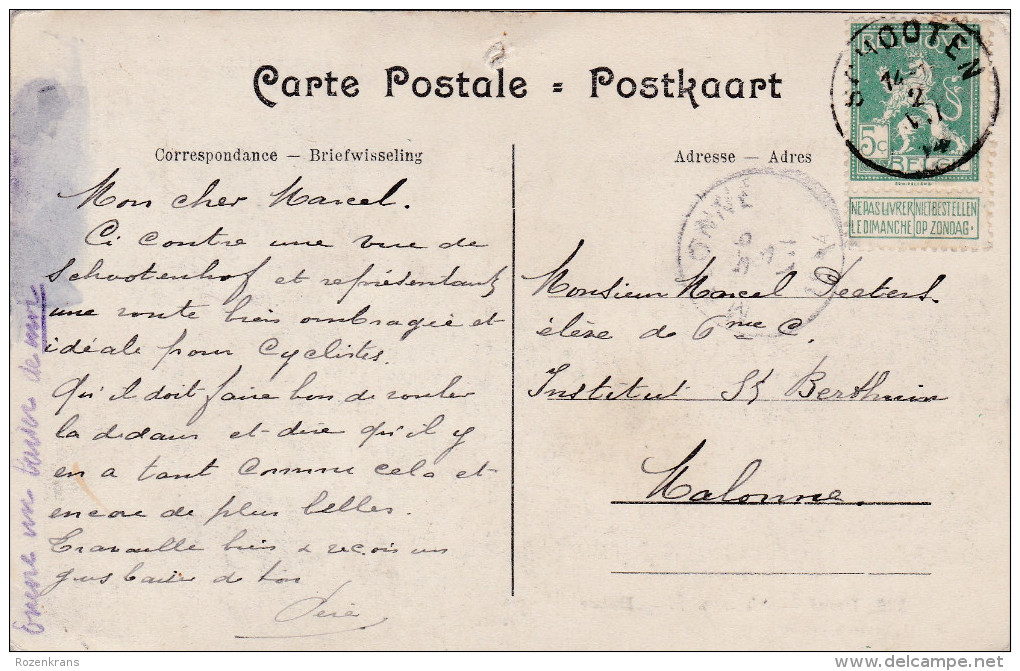 Carte Postale = Postkaart
Correspondance — Briefwisseling
Adresse — Adres
SCHOOTEN
14
2
BELGIË
5c
NE PAS LIVRER LE DIMANCHE
NIET BESTELLEN OP ZONDAG.
Mon cher Marcel.
Ci contre une vue de
Schootenhof et représentant
une route bien ombragée et
idéale pour Cyclistes.
Qu'il doit faire bon de rouler
la dedans et dire qu'il y
en a tant comme cela et
encore de plus belles.
Travaille bien & reçois un
gros baiser de ton
Père
Encore un baiser de moi
Monsieur Marcel Peeters.
élève de 6me C.
Institut St Berthuin
Malonne.
Rozenkrans
www.delcampe.net